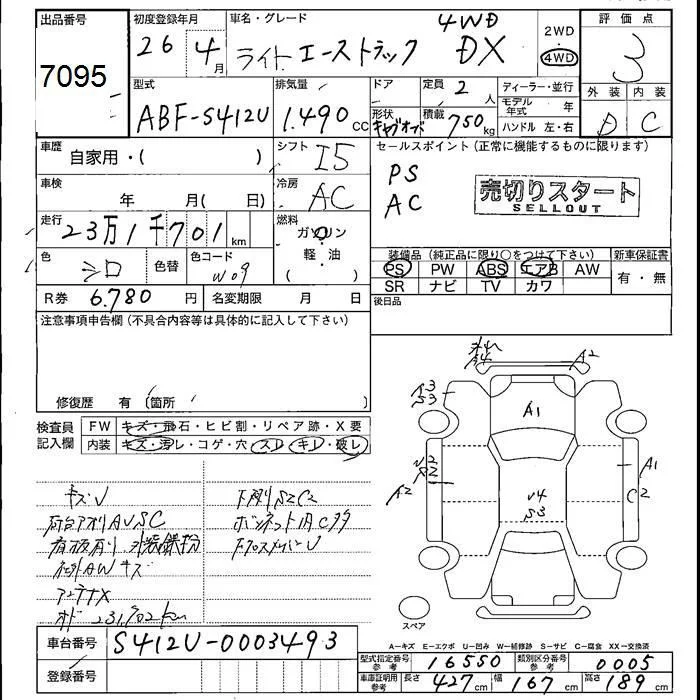 出品番号 初度登録年月 車名・グレード 4WD 2WD 4WD 評価点
7095 26年 4月 ライトエーストラック DX 3
型式 排気量 ドア 定員 2人 ディーラー・並行 外装 内装
ABF-S412U 1.490cc 形状 積載 750kg モデル年式 年 C
ハンドル 左・右
車歴 自家用・( ) シフト I5 セールスポイント(正常に機能するものに限ります)
車検 年 月( 日) 冷房 AC PS
AC 売切りスタート
SELLOUT
走行 23万1千701km 燃料 ガソリン 軽・油 ( )
色 シロ 色替 色コード W09
装備品(純正品に限り○をつけて下さい) 新車保証書
PS PW ABS エアB AW 有・無
SR ナビ TV カワ
R券 6.780円 名変期限 月 日 後日品
注意事項申告欄(不具合内容等は具体的に記入して下さい)
修復歴 有 〔箇所
A2
A3
S3
A1
A2
A1
C2
U4
S3
検査員記入欄 FW キズ・飛石・ヒビ割・リペア跡・X要
内装 キズ・汚レ・コゲ・穴 スレ キレ・破レ
キズU
下廻りS2C2
荷台アオリAUSC
看板有り
社外AWキズ
アンテナX
オド 231,702km
スペア
車台番号 S412U-0003493
登録番号
A−キズ E−エクボ U−凹み W−補修跡 S−サビ C−腐食 XX−交換済
型式指定番号 参考 16550 類別区分番号 参考 0005
車庫証明用 参考 長さ 427cm 幅 167cm 高さ 189cm